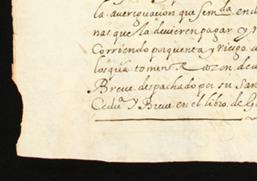 la auerguacion, que sem da en d
nas que la deuieren pagar y r
Corriendo por quenta y riesgo d
los que tomen Razon de u
Breue despachado por su San
Cedu y Breue en el libro de G